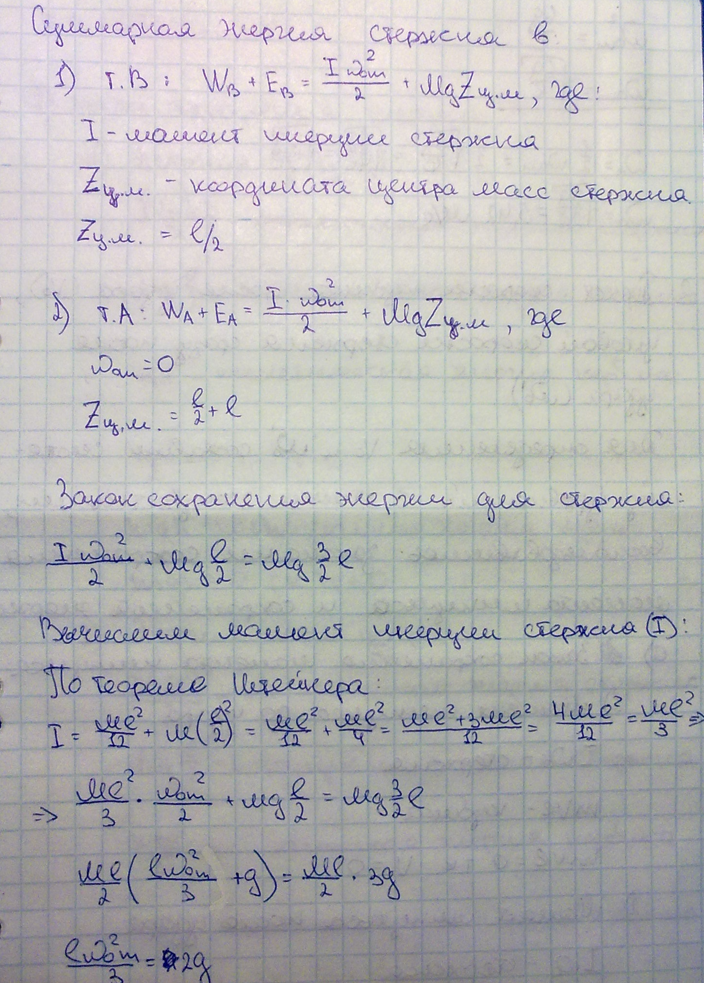 Суммарная энергия стержня в
1) т.В: W_B + E_B = I ω_от²/2 + MgZ_ц.м, где:
I - момент инерции стержня
Z_ц.м. - координата центра масс стержня.
Z_ц.м. = l/2
2) т.А: W_A + E_A = I·ω_от²/2 + MgZ_ц.м, где
ω_от = 0
Z_ц.м. = l/2 + l
Закон сохранения энергии для стержня:
I ω_от²/2 + Mg l/2 = Mg 3/2 l
Вычислим момент инерции стержня (I):
По теореме Штейнера:
I = Ml²/12 + M(l/2)² = Ml²/12 + Ml²/4 = Ml²+3Ml²/12 = 4Ml²/12 = Ml²/3 ⇒
⇒ Ml²/3 · ω_от²/2 + Mg l/2 = Mg 3/2 l
Ml/2 (lω_от²/3 + g) = Ml/2 · 3g
lω_от²/3 = 2g